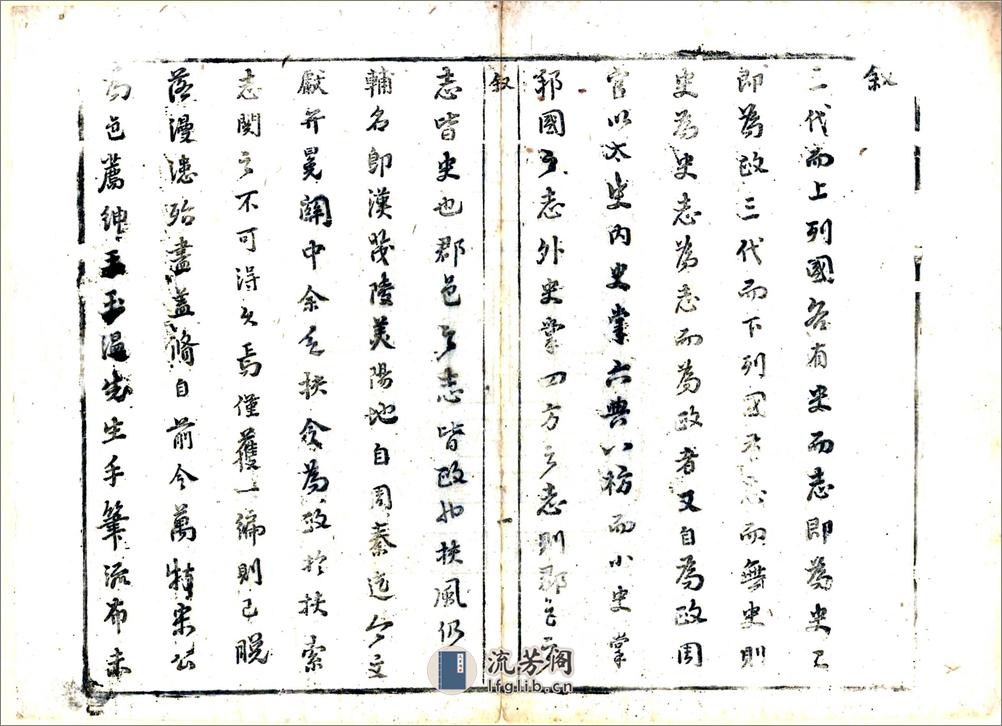 叙
三代而上列國各有史而志即為史之
即為政三代而下列國有志而無史則
史為史志為志而為政者又自為政周
官以太史内史掌六典八枋而小史掌
邦國之志外史掌四方之志則郡邑之
叙
一
志皆史也郡邑之志皆政也扶風仍
輔名即漢茂陵美陽地自周秦迄今文
獻弁冕關中余之扶令為政於扶索
志閱之不可得久焉僅獲一編則已脱
落漫漶殆盡盖脩自前令萬特宋公
為邑薦紳王玉温先生手筆流布未
流芳阁
lfglib.cn